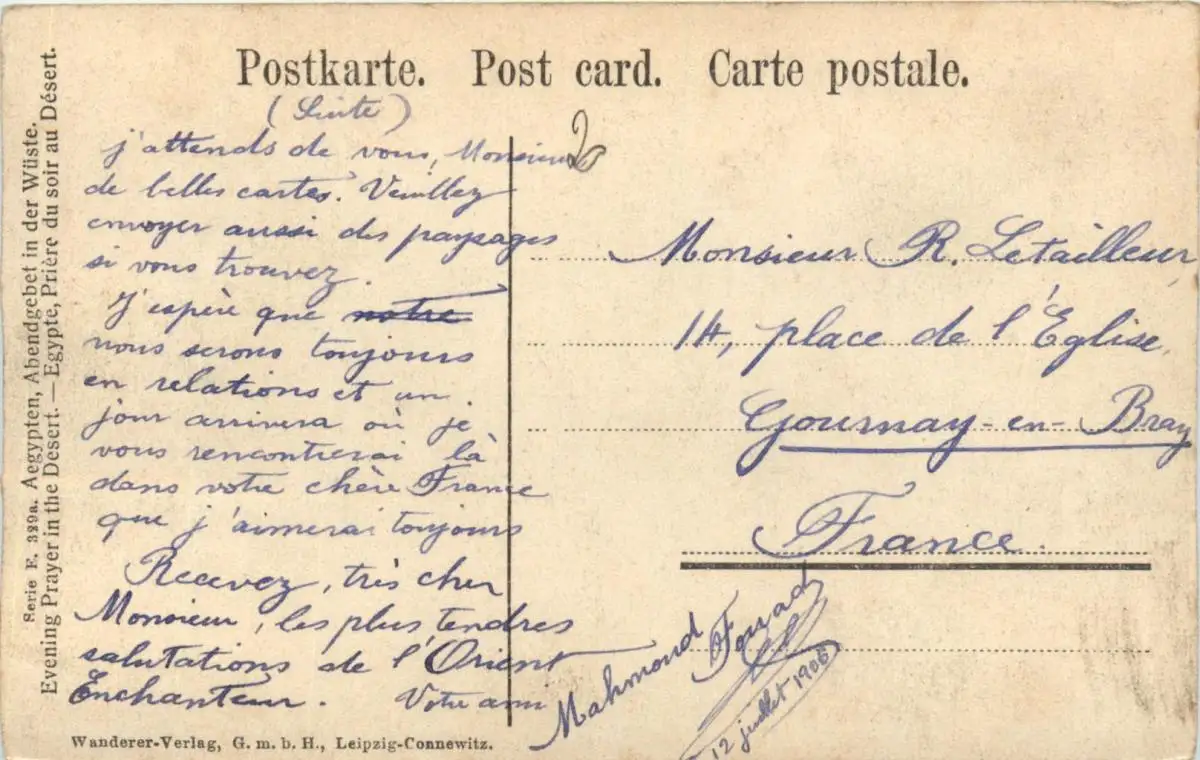 Postkarte. Post card. Carte postale.
(Suite)
j'attends de vous, Monsieur
de belles cartes. Veuillez
envoyer aussi des paysages
si vous trouvez.
J'espère que notre
nous serons toujours
en relations et un
jour arrivera où je
vous rencontrerai là
dans votre chère France
que j'aimerai toujours
Recevez, très cher
Monsieur, les plus tendres
salutations de l'Orient
Enchanteur. Votre ami
Mahmoud
12 juillet 1906
20
Monsieur R. Letailleur
14, place de l'Église
Gournay-en-Bray
France.
Serie E. 329a. Aegypten, Abendgebet in der Wüste.
Evening Prayer in the Desert.—Egypte, Prière du soir au Désert.
Wanderer-Verlag, G. m. b. H., Leipzig-Connewitz.